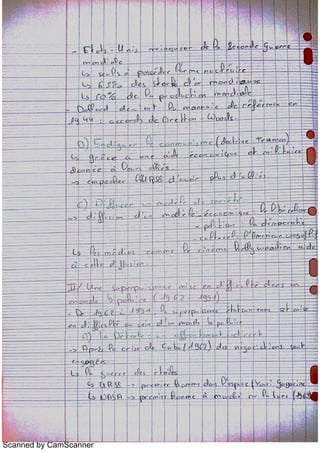 - Etats-Unis vainqueur de la Seconde Guerre
mondiale
↳ seuls à posséder l'arme nucléaire
↳ 65% des stocks d'or mondiaux
↳ 50% de la production mondiale
- Dollard devient la monnaie de référence en
1944 : accords de Bretton-Woods.
b) Endiguer le communisme (doctrine Truman)
↳ grâce à une aide économique et militaire
donnée à leurs alliés.
→ empecher l'URSS d'avoir plus d'alliés
c) Diffuser un modèle de société
→ diffusion d'un modèle - économique : le libéralisme
- politique : la démocratie
- culturel : l'American way of life
↳ les médias comme le cinéma hollywoodien aide
à cette diffusion
II/ Une superpuissance mise en difficulté dans un
monde bipolaire (1962 - 1991)
- De 1962 à 1991, la superpuissance étatsunienne est mise
en difficulté au sein d'un monde bipolaire
a) La Détente : un affrontement direct
→ Après la crise de Cuba (1962) des négociations sont
engagées.
↳ la guerre des étoiles
↳ URSS → premier homme dans l'espace (Youri Gagarine
↳ NASA → premier homme à marcher sur la Lune (1969)
Scanned by CamScanner